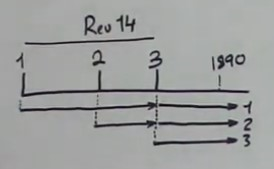 Rev 14
1 2 3 1890
1
2
3